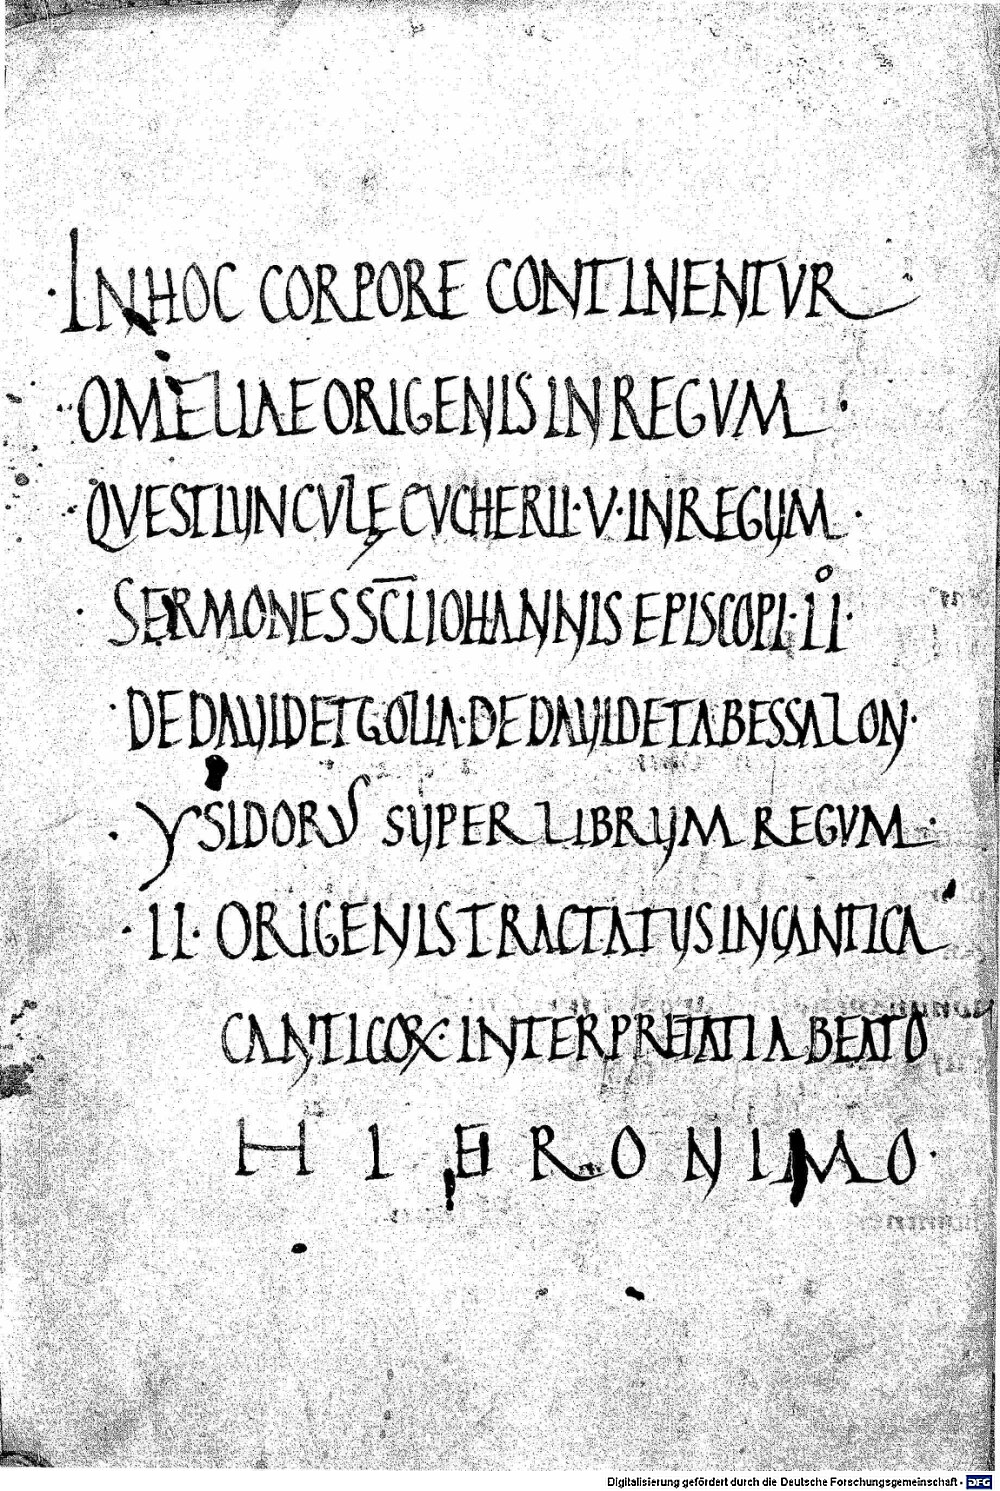 ·INHOC CORPORE CONTINENTVR
·OMELIAE ORIGENIS IN REGVM·
·QVESTIUNCULĘ EVCHERII·V·IN REGUM·
·SERMONES SC̅I IOHANNIS EPISCOPI·IIº·
·DE DAUID ET GOLIA·DE DAUID ET ABESSALON·
·YSIDORUS SUPER LIBRUM REGVM·
·II·ORIGENIS TRACTATUS IN CANTICA
CANTICOꝜ·INTERPRETATI A BEATO
HIERONIMO·
Digitalisierung gefördert durch die Deutsche Forschungsgemeinschaft - DFG